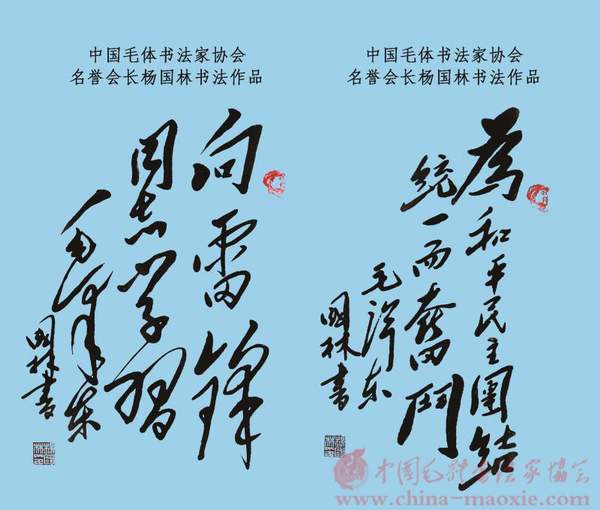 中国毛体书法家协会
名誉会长杨国林书法作品
向雷鋒
同志学習
毛泽东
国林書
中国毛体书法家协会
名誉会长杨国林书法作品
為和平民主團結
統一而奮鬥
毛泽东
国林書
中國毛體書法家協會
www.china-maoxie.com